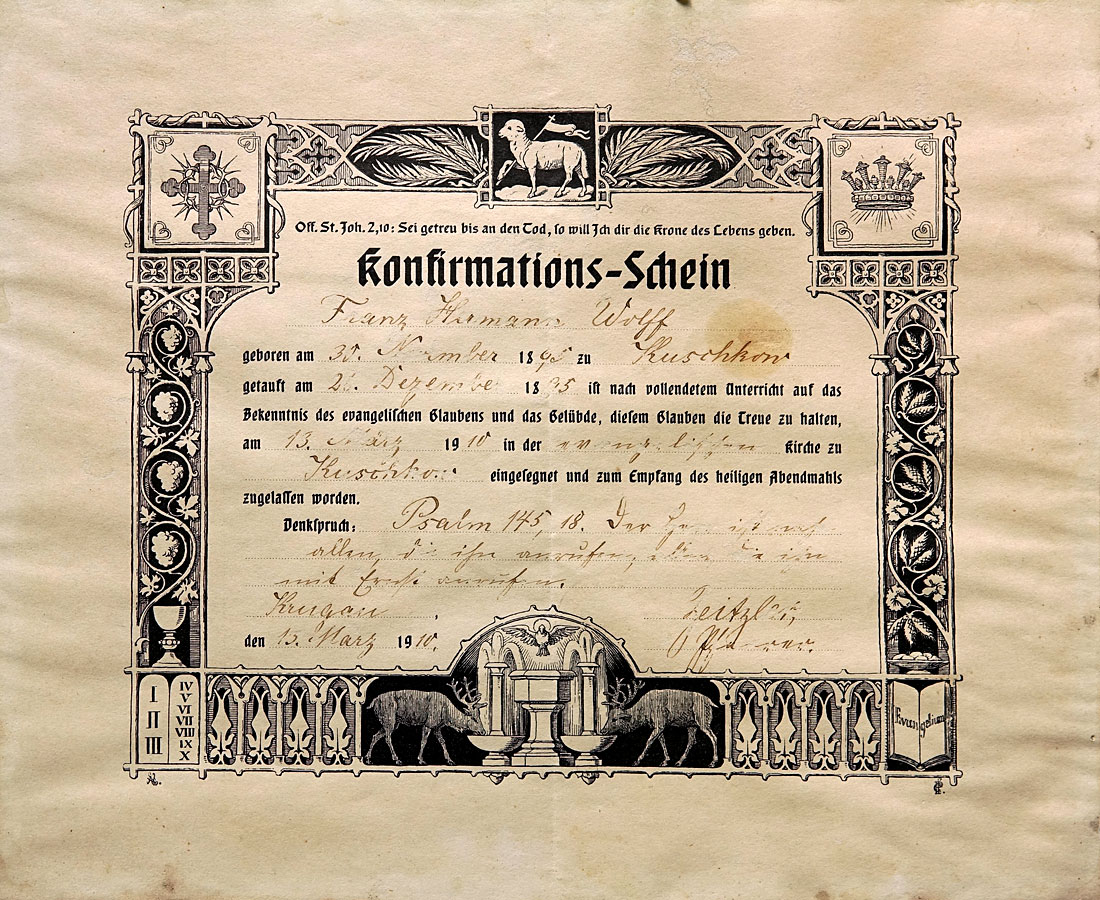 Off. St. Joh. 2,10: Sei getreu bis an den Tod, so will Ich dir die Krone des Lebens geben.
Konfirmations-Schein
Franz Hermann Wolff
geboren am 30. November 1895 zu Kuschkow
getauft am 26. Dezember 1895 ist nach vollendetem Unterricht auf das
Bekenntnis des evangelischen Glaubens und das Gelübde, diesem Glauben die Treue zu halten,
am 13. März 1910 in der evangelischen Kirche zu
Kuschkow eingesegnet und zum Empfang des heiligen Abendmahls
zugelassen worden.
Denkspruch: Psalm 145, 18. Der Herr ist nah
allen, die ihn anrufen, allen die ihn
mit Ernst anrufen.
Krugau,
den 13. März 1910.
Pfarrer.
I
II
III
IV
V
VI
VII
VIII
IX
X
Evangelium